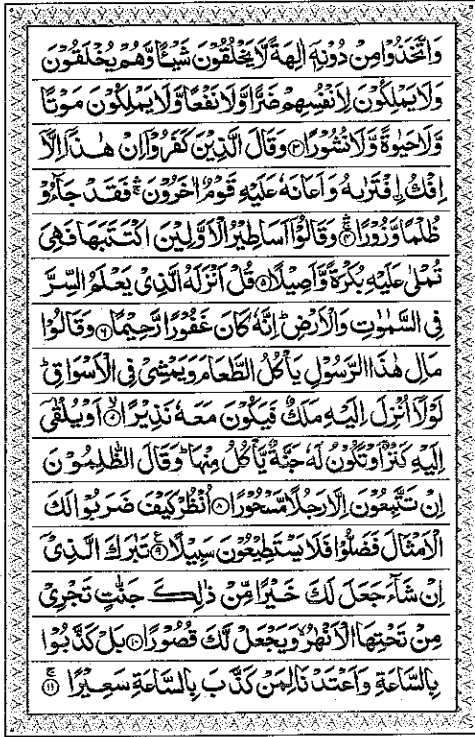 وَاتَّخَذُوْا مِنْ دُوْنِهٖۤ اٰلِهَةً لَّا يَخْلُقُوْنَ شَيْـًٔا وَّهُمْ يُخْلَقُوْنَ
وَلَا يَمْلِكُوْنَ لِاَنْفُسِهِمْ ضَرًّا وَّلَا نَفْعًا وَّلَا يَمْلِكُوْنَ مَوْتًا
وَّلَا حَيٰوةً وَّلَا نُشُوْرًا ۝۳ وَقَالَ الَّذِيْنَ كَفَرُوْۤا اِنْ هٰذَاۤ اِلَّاۤ
اِفْكُ ۨافْتَرٰىهُ وَاَعَانَهٗ عَلَيْهِ قَوْمٌ اٰخَرُوْنَ ۛ فَقَدْ جَآءُوْ
ظُلْمًا وَّزُوْرًا ۝۴ وَقَالُوْۤا اَسَاطِيْرُ الْاَوَّلِيْنَ اكْتَتَبَهَا فَهِيَ
تُمْلٰى عَلَيْهِ بُكْرَةً وَّاَصِيْلًا ۝۵ قُلْ اَنْزَلَهُ الَّذِيْ يَعْلَمُ السِّرَّ
فِي السَّمٰوٰتِ وَالْاَرْضِ ؕ اِنَّهٗ كَانَ غَفُوْرًا رَّحِيْمًا ۝۶ وَقَالُوْا
مَالِ هٰذَا الرَّسُوْلِ يَاْكُلُ الطَّعَامَ وَيَمْشِيْ فِي الْاَسْوَاقِ ؕ
لَوْلَاۤ اُنْزِلَ اِلَيْهِ مَلَكٌ فَيَكُوْنَ مَعَهٗ نَذِيْرًا ۝۷ اَوْ يُلْقٰۤى
اِلَيْهِ كَنْزٌ اَوْ تَكُوْنُ لَهٗ جَنَّةٌ يَّاْكُلُ مِنْهَا ؕ وَقَالَ الظّٰلِمُوْنَ
اِنْ تَتَّبِعُوْنَ اِلَّا رَجُلًا مَّسْحُوْرًا ۝۸ اُنْظُرْ كَيْفَ ضَرَبُوْا لَكَ
الْاَمْثَالَ فَضَلُّوْا فَلَا يَسْتَطِيْعُوْنَ سَبِيْلًا ۝۹ تَبٰرَكَ الَّذِيْۤ
اِنْ شَآءَ جَعَلَ لَكَ خَيْرًا مِّنْ ذٰلِكَ جَنّٰتٍ تَجْرِيْ
مِنْ تَحْتِهَا الْاَنْهٰرُ ۙ وَيَجْعَلْ لَّكَ قُصُوْرًا ۝۱۰ بَلْ كَذَّبُوْا
بِالسَّاعَةِ وَاَعْتَدْنَا لِمَنْ كَذَّبَ بِالسَّاعَةِ سَعِيْرًا ۝۱۱